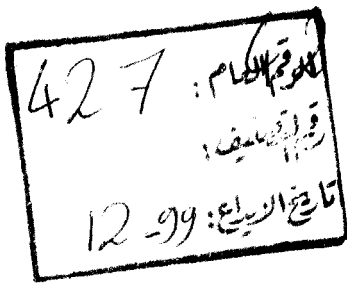 الرقم العام: 427
رقم التصنيف:
تاريخ الايداع: 99-12